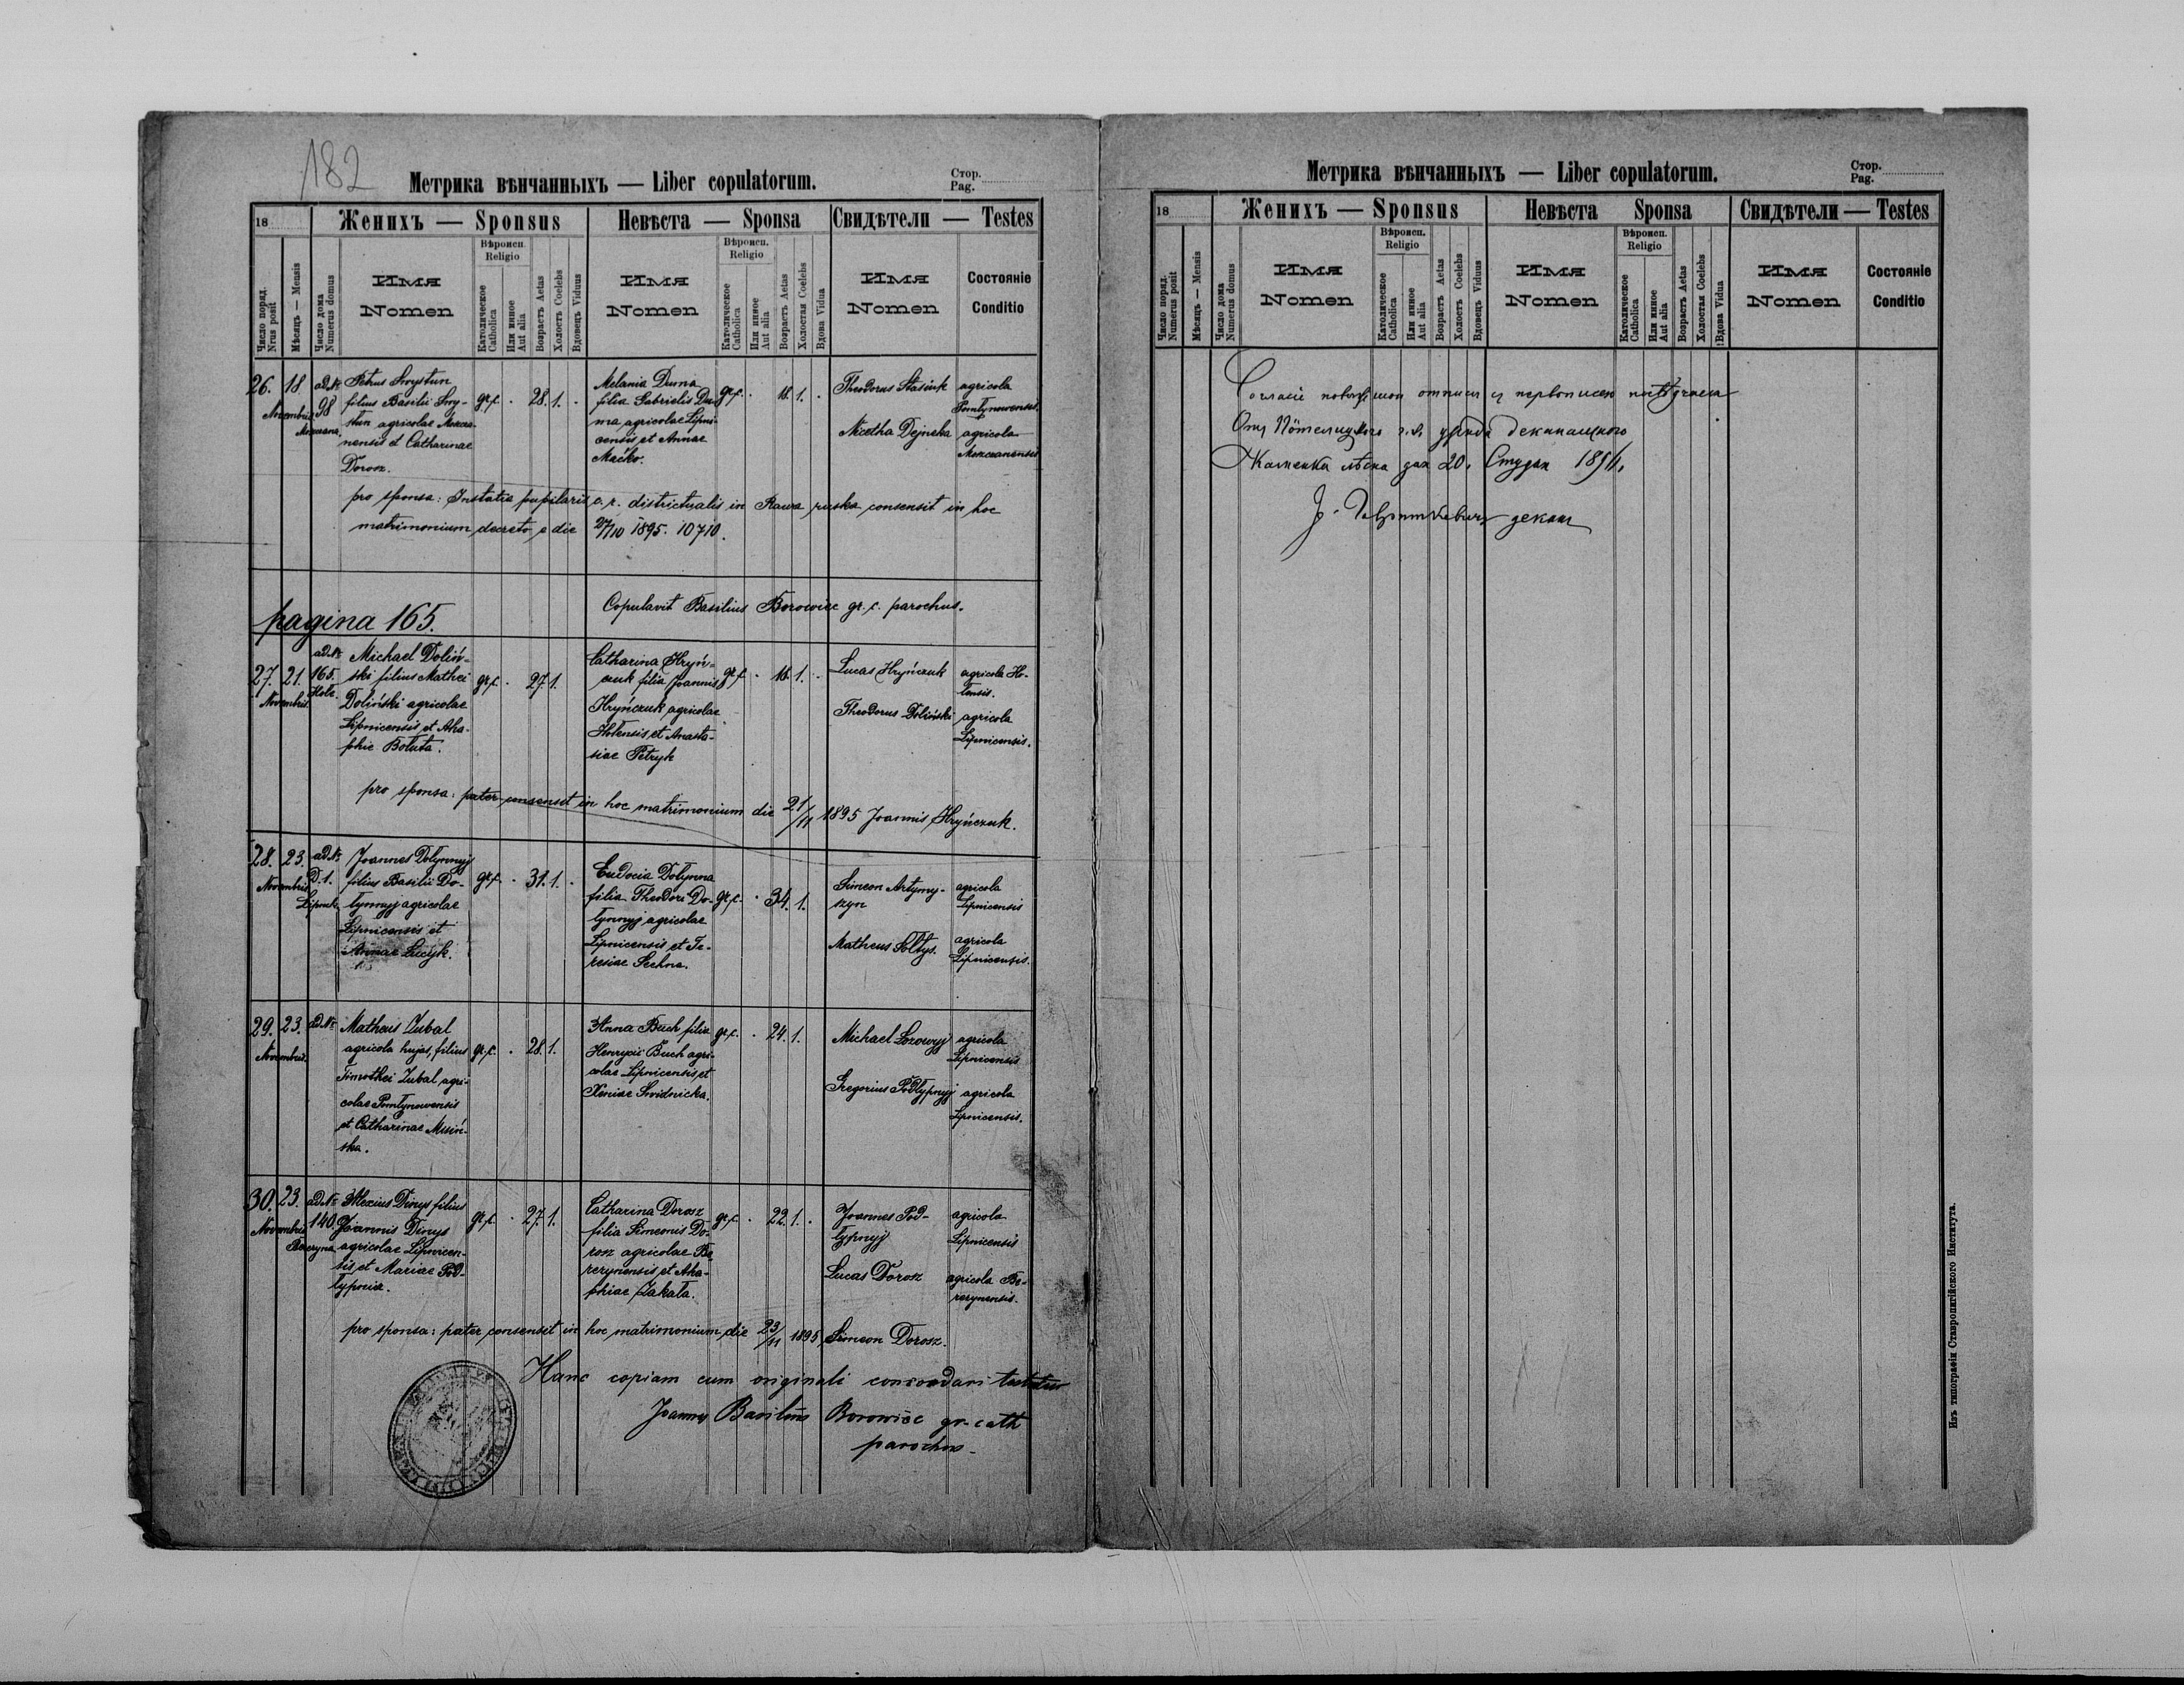 182
Метрика вѣнчанныхъ — Liber copulatorum.
Стор.
Pag.
18
Женихъ — Sponsus
Невѣста — Sponsa
Свидѣтели — Testes
Число поряд.
Nrus posit
Мѣсяцъ — Mensis
Число дома
Numerus domus
Имя
Nomen
Вѣроисп.
Religio
Католическое
Catholica
Или инное
Aut alia
Возрастъ Aetas
Холостъ Coelebs
Вдовецъ Viduus
Имя
Nomen
Вѣроисп.
Religio
Католическое
Catholica
Или инное
Aut alia
Возрастъ Aetas
Холостая Coelebs
Вдова Vidua
Имя
Nomen
Состояніе
Conditio
26. 18 Novembris
ad №
98
Petrus Swystun
filius Basilii Swy-
stun agricolae
nensis et Catharinae
Dorosz.
gr.c. . 28. 1. .
Melania Duma
filia Gabrielis Du-
ma agricolae Lipni-
censis et Annae
Maćko.
gr.c. . 18. 1. .
Theodorus Stasiuk agricola
Nicetha Dejneka agricola
pro sponsa: Instatia pupilaris c. r. districtualis in Rawa ruska consensit in hoc
matrimonium decreto e die 27/10 1895. 10710.
Copulavit Basilius Borowiec gr. c. parochus.
pagina 165.
27. 21. Novembris
ad №
165.
Michael Doliń-
ski filius Mathei
Doliński agricolae
Lipnicensis et Aha-
phie Boluta.
gr.c. . 27. 1.
Catharina Hryń-
czuk filia Joannis
Hryńczuk agricolae
Holensis, et Anasta-
siae Petryk
gr.c. . 18. 1. .
Lucas Hryńczuk agricola Ho-
lensis.
Theodorus Doliński agricola
Lipnicensis.
pro sponsa: pater consensit in hoc matrimonium die 21/11 1895 Joannis Hryńczuk.
28. 23. Novembris
ad №
D. 1.
Joannes Dołynnyj
filius Basilii Do-
łynnyj agricolae
Lipnicensis et
Annae Lucyk.
gr.c. . 31. 1. .
Eudocia Dołynna
filia Theodori Do-
łynnyj agricolae
Lipnicensis et Te-
resiae Sechna.
gr.c. . 34. 1.
Simeon Artymy-
szyn
agricola
Lipnicensis
Matheus Sołtys.
agricola
Lipnicensis.
29. 23. Novembris
ad №
Matheus Zubal
agricola hujas, filius
Timothei Zubal agri-
colae Pomłynowensis
et Catharinae Misiń-
ska.
gr.c. . 28. 1.
Anna Buch filia
Henryci Buch agri-
colae Lipnicensis, et
Xeniae Swidnicka.
gr.c. . 24. 1.
Michael Lozowyj agricola
Lipnicensis
Gregorius Podłypnyj agricola
Lipnicensis.
30. 23. Novembris
ad №
140.
Alexius Dinys filius
Joannis Dinys
agricolae Lipnicen-
sis et Mariae Pod-
łypnia.
gr.c. . 27. 1.
Catharina Dorosz
filia Simeonis Do-
rosz agricolae Be-
rezynensis, et Aha-
phiae Zakała.
gr.c. . 22. 1. .
Joannes Pod-
łypnyj
agricola
Lipnicensis
Lucas Dorosz
agricola Be-
rezynensis.
pro sponsa: pater consensit in hoc matrimonium die 23/11 1895 Simeon Dorosz.
Hanc copiam cum originali concordari testatur
Joannes Basilius Borowiec gr. cath
parochus
Метрика вѣнчанныхъ — Liber copulatorum.
Стор.
Pag.
18
Женихъ — Sponsus
Невѣста Sponsa
Свидѣтели — Testes
Число поряд.
Numerus posit
Мѣсяцъ — Mensis
Число дома
Numerus domus
Имя
Nomen
Вѣроисп.
Religio
Католическое
Catholica
Или инное
Aut alia
Возрастъ Aetas
Холостъ Coelebs
Вдовецъ Viduus
Имя
Nomen
Вѣроисп.
Religio
Католическое
Catholica
Или инное
Aut alia
Возрастъ Aetas
Холостая Coelebs
Вдова Vidua
Имя
Nomen
Состояніе
Conditio
деканъ
Изъ типографіи Ставропигійского Института.